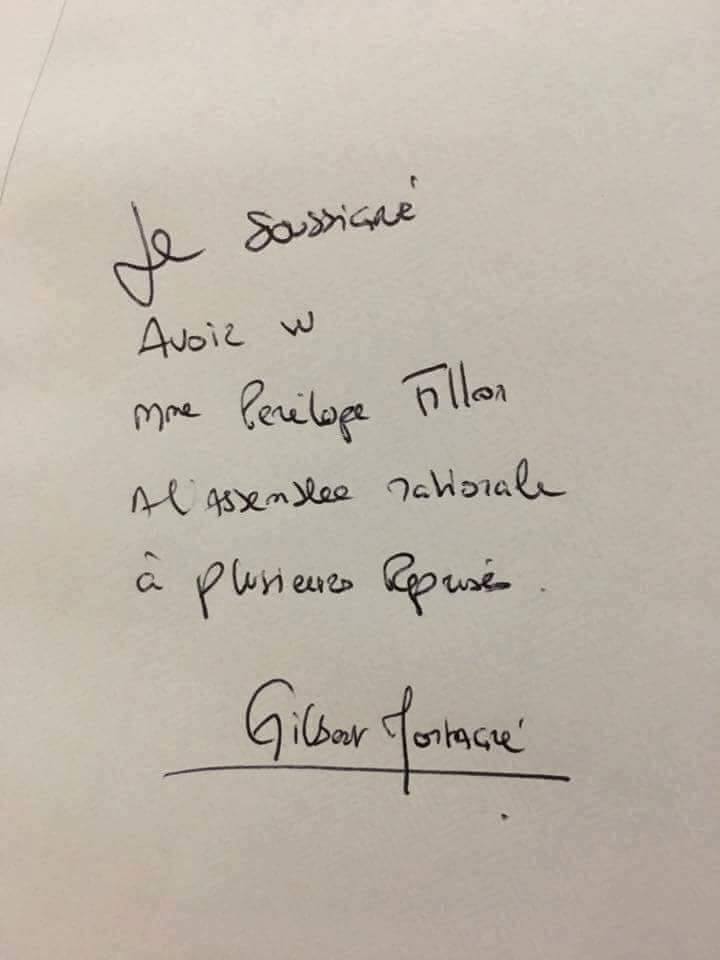 Je soussigné
Avoir vu
Mme Penelope Fillon
A l'Assemblee nationale
à plusieurs Reprises.
Gilbert Montagné